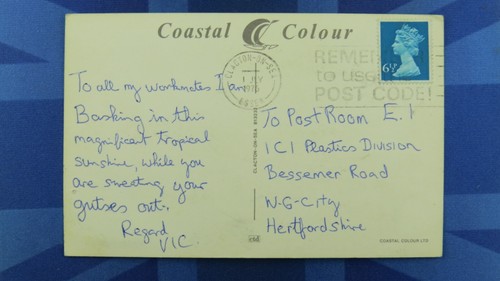 Coastal Colour
CLACTON-ON-SEA
JLY
1976
ESSEX
REMEMBER
to USE
POST CODE!
6½P
To all my workmates I am
Basking in this
magnificent tropical
sunshine, while you
are sweating your
gutses out.
Regard
VIC.
CLACTON-ON-SEA
To Post Room E.1
ICI Plastics Division
Bessemer Road
W-G-City
Hertfordshire
COASTAL COLOUR LTD